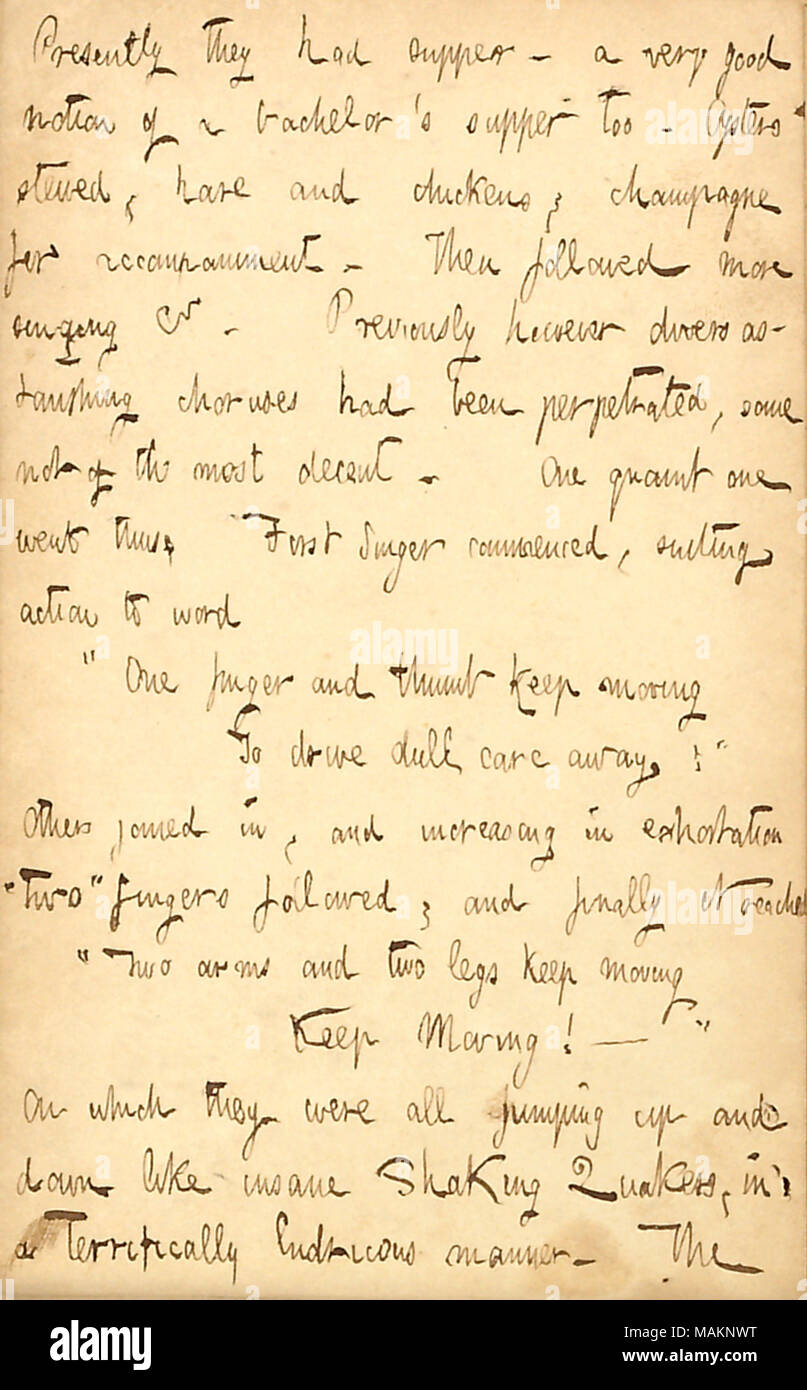 Presently they had supper - a very good
notion of a bachelor's supper too. Oysters
stewed, hare and chickens, & champagne
for accompaniment. Then followed more
singing &c. Previously however divers as-
tounishing choruses had been perpetrated, some
not of the most decent. One quaint one
went thus; First Singer commenced, suiting
action to word
" One finger and thumb keep moving
To drive dull care away, !"
Others joined in, and increasing in exhortation
"two" fingers followed; and finally it reached
" Two arms and two legs keep moving
Keep Moving! — "
On which they were all jumping up and
down like insane Shaking Quakers, in
a Terrifically ludricous manner. The
alamy
Image ID: MAKNWT
www.alamy.com